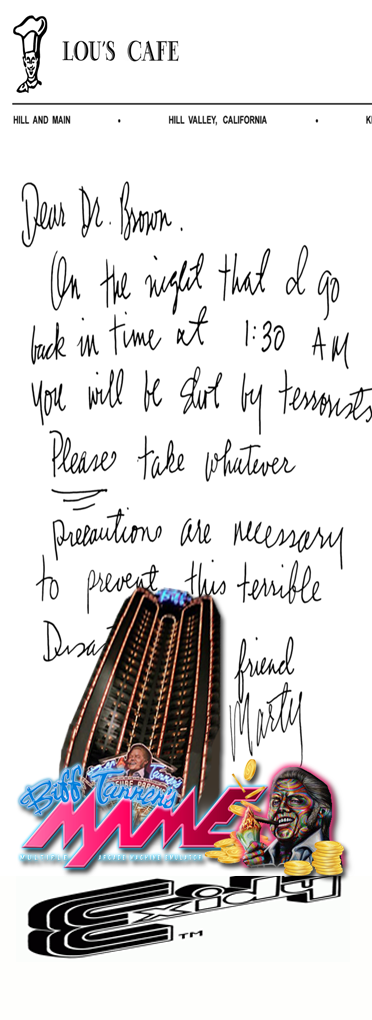 LOU'S CAFE
HILL AND MAIN • HILL VALLEY, CALIFORNIA •
Dear Dr. Brown.
On the night that I go
back in time at 1:30 AM
You will be shot by terrorists
Please take whatever
precautions are necessary
to prevent this terrible
friend
Marty
Biff
Tannen's
MAME
MULTIPLE ARCADE MACHINE EMULATOR
Exidy
TM